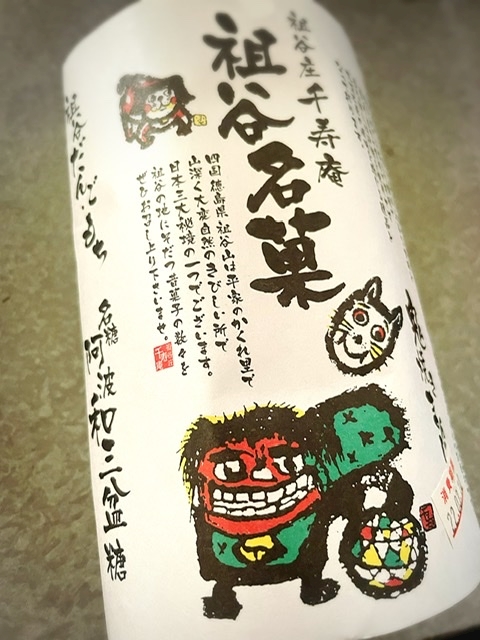 祖谷庄 千寿庵
祖谷名菓
四国徳島県祖谷山は平家のかくれ里で
山深く大変自然のきびしい所で
日本三大秘境の一つでございます。
祖谷の地にそだつ昔菓子の数々を
ぜひお召し上り下さいませ。
祖谷だんごもち
名糖 阿波和三盆糖